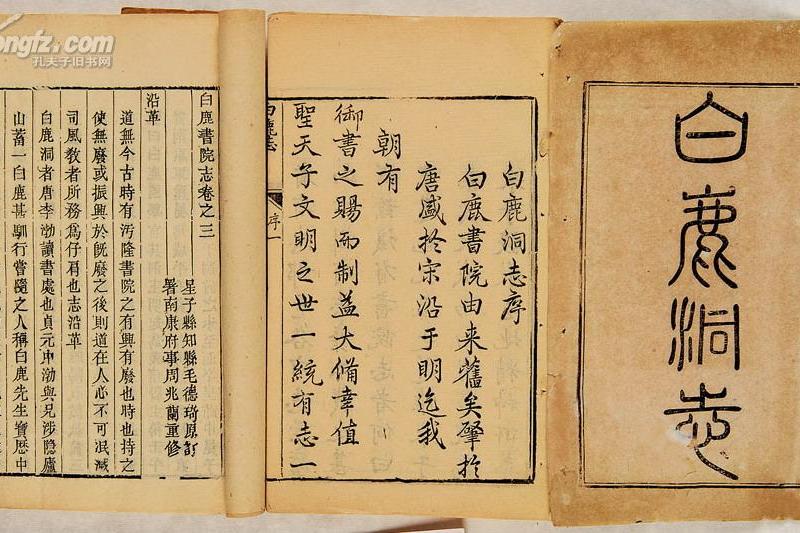 白鹿洞志
白鹿洞志序
白鹿書院由来舊矣肇於
唐盛於宋沿于明迄我
朝有
御書之賜而制益大備幸值
聖天子文明之世一統有志一
白鹿志
序一
白鹿書院志卷之三
星子縣知縣毛德琦原訂
署南康府事周兆蘭重修
沿革
道無今古時有汚隆書院之有興有廢也時也持之
使無廢或振興於旣廢之後則道在人心不可泯滅
司風教者所務爲仔肩也志沿革
白鹿洞者唐李渤讀書處也貞元中渤與兄涉隱廬
山蓄一白鹿甚馴行嘗隨之人稱白鹿先生寶歷中
kongfz.com
孔夫子旧书网